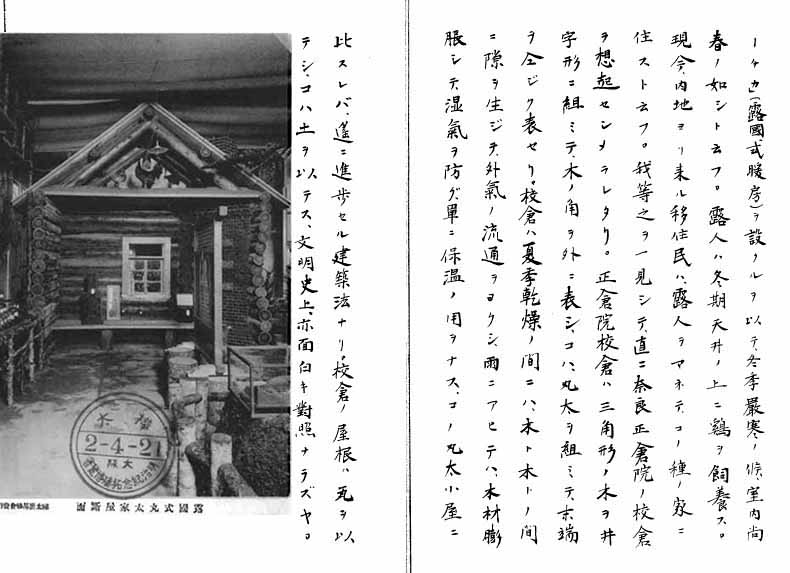 ーチカ(露國式暖房)ヲ設クルヲ以テ、冬季嚴寒ノ候、室内尚
春ノ如シト云フ。露人ハ冬期天井ノ上ニ鷄ヲ飼養ス。
現今、内地ヨリ来ル移住民ハ、露人ヲマネテ、コノ種ノ家ニ
住スト云フ。我等之ヲ一見シテ、直ニ奈良正倉院ノ校倉
ヲ想起セシメラレタリ。正倉院校倉ハ三角形ノ木ヲ井
字形ニ組ミテ、木ノ角ヲ外ニ表シ、コハ、丸太ヲ組ミテ、末端
ヲ仝ジク表セリ。校倉ハ夏季乾燥ノ間ニハ、木ト木トノ間
ニ隙ヲ生ジテ、外氣ノ流通ヲヨクシ、雨ニアヒテハ、木材膨
脹シテ、湿氣ヲ防グ、單ニ保温ノ用ヲナス、コノ丸太小屋ニ
比スレバ、遙ニ進歩セル建築法ナリ。校倉ノ屋根ハ瓦ヲ以
テシ、コハ土ヲ以テス、文明史上、亦面白キ對照ナラズヤ。
2-4-21
大阪
露國式丸太家屋断面